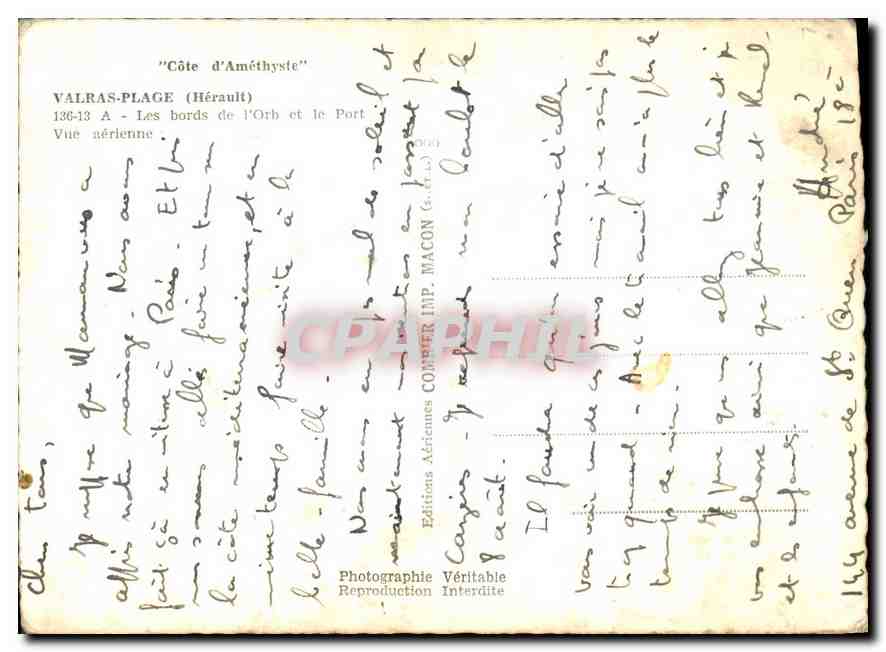 "Côte d'Améthyste"
VALRAS-PLAGE (Hérault)
136-13 A - Les bords de l'Orb et le Port
Vue aérienne
Editions Aériennes COMBIER IMP. MACON (S.-et-L.)
CPAPHIL
Photographie Véritable
Reproduction Interdite
Chers tous,
que Maman vous a
notre mariage. Nous avons
fait çà en vitesse à Paris. Et puis
nous sommes allés faire un tour sur
la côte méditerranéenne, et en
même temps faire visite à la
belle-famille.
Nous avons eu pas mal de soleil et
maintenant nous rentrons en passant par
mon boulot le
8 août.
Il faudra qu'on essaie d'aller
vous voir un de ces jours mais je ne sais pas
trop quand. Avec le travail on n'a plus le
temps de rien.
que vous allez tous bien et je
vous embrasse ainsi que Jeannine et
et les enfants.
André
144 avenue de St Ouen Paris 18e